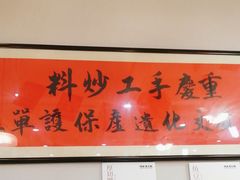 重慶手工炒料
文化遺產保護單